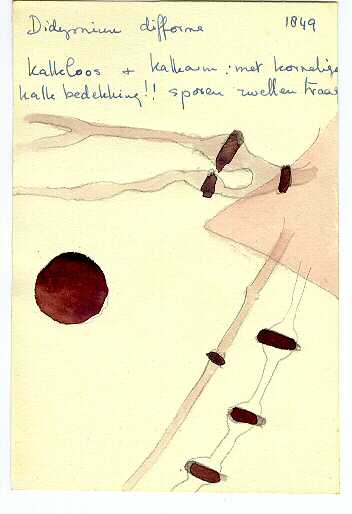 Didymium difforme 1849
kalkloos + kalkarm. met korrelige
kalk bedekking!! sporen zwellen traag